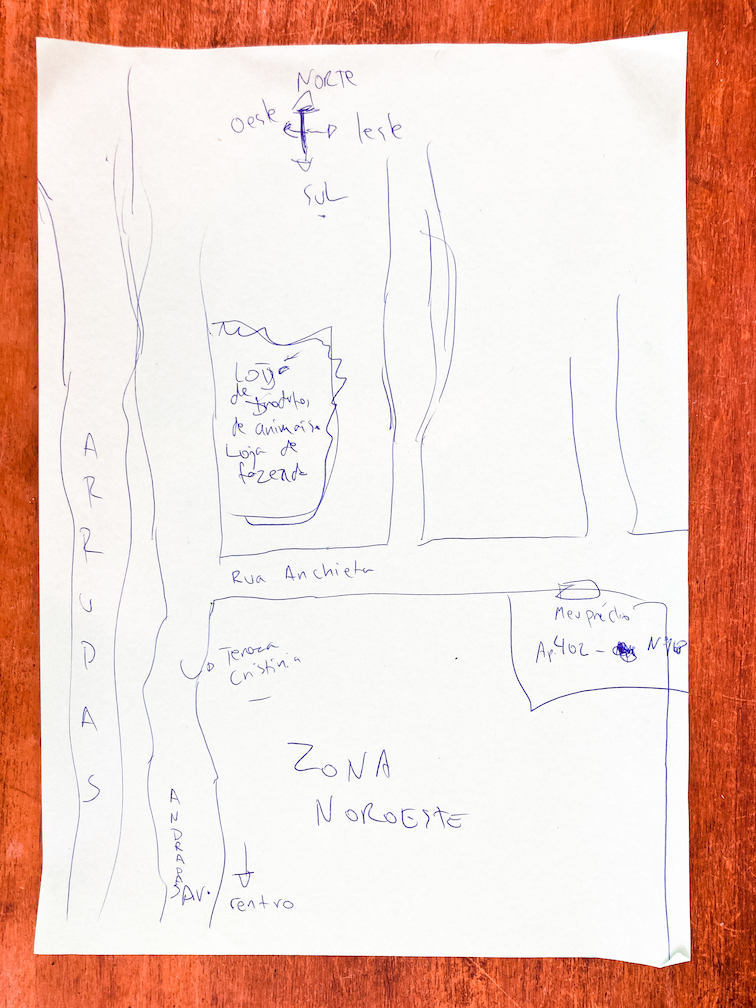 NORTE
oeste
leste
SUL
LOJA
de Produtos
de animais.
Loja de
fazenda
ARRUDAS
Rua Anchieta
Meu prédio
Ap. 402 -
Tereza
Cristinia
ZONA
NOROESTE
ANDRADAS
AV.
centro